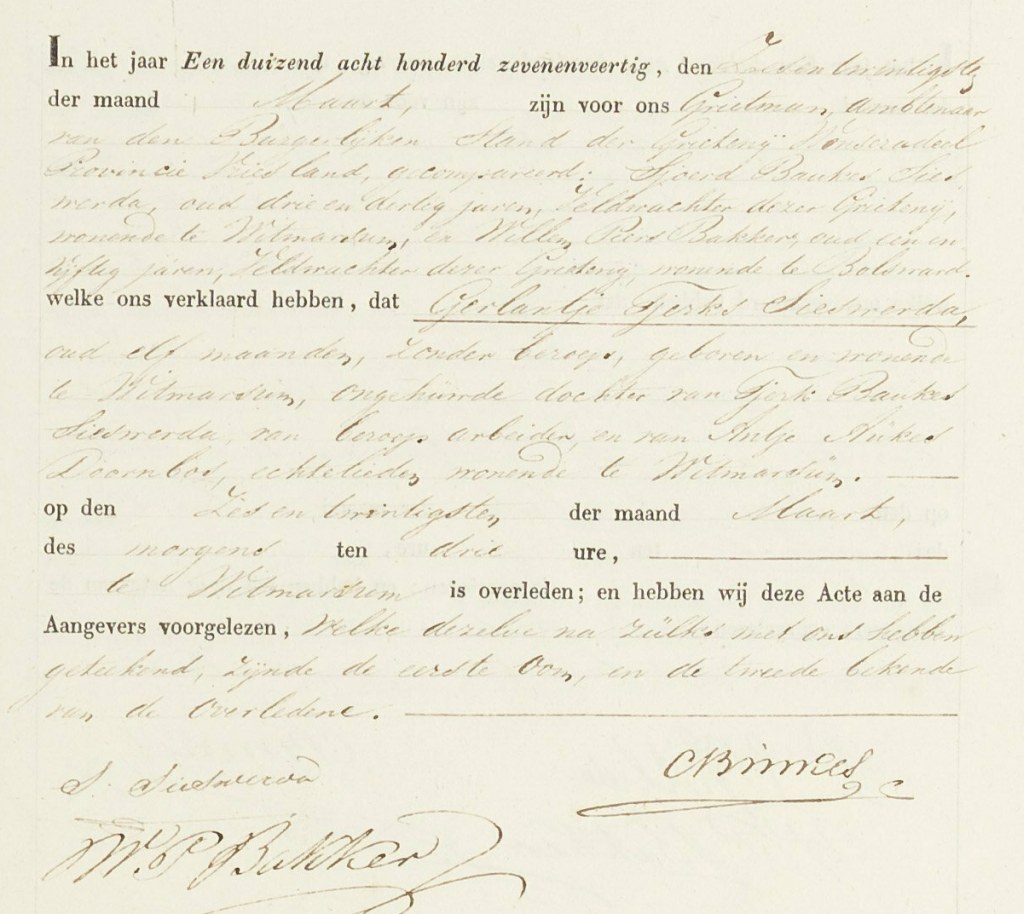 In het jaar Een duizend acht honderd zevenenveertig, den Zesentwintigsten
der maand Maart, zijn voor ons Grietman, Ambtenaar
van den Burgerlijken Stand der Grietenij Wonseradeel
Provincie Vriesland, gecompareerd: Sjoerd Baukes Sies
werda, oud drie en dertig jaren, Veldwachter dezer Grietenij,
wonende te Witmarsum, en Willem Piers Bakker, oud een en
vijftig jaren, Veldwachter dezer Grietenij, wonende te Bolsward.
welke ons verklaard hebben, dat Gerlantje Tjerks Sieswerda,
oud elf maanden, zonder beroep, geboren en wonende
te Witmarsum, ongehuwde dochter van Tjerk Baukes
Sieswerda, van beroep arbeider, en van Antje Aukes
Doornbos, echtelieden wonende te Witmarsum.
op den Zes en twintigsten der maand Maart,
des morgens ten drie ure,
te Witmarsum is overleden; en hebben wij deze Acte aan de
Aangevers voorgelezen, Welke dezelve na zulks met ons hebben
geteekend, zijnde de eerste Oom, en de tweede bekende
van de Overledene.
S. Sieswerda
W. P. Bakker